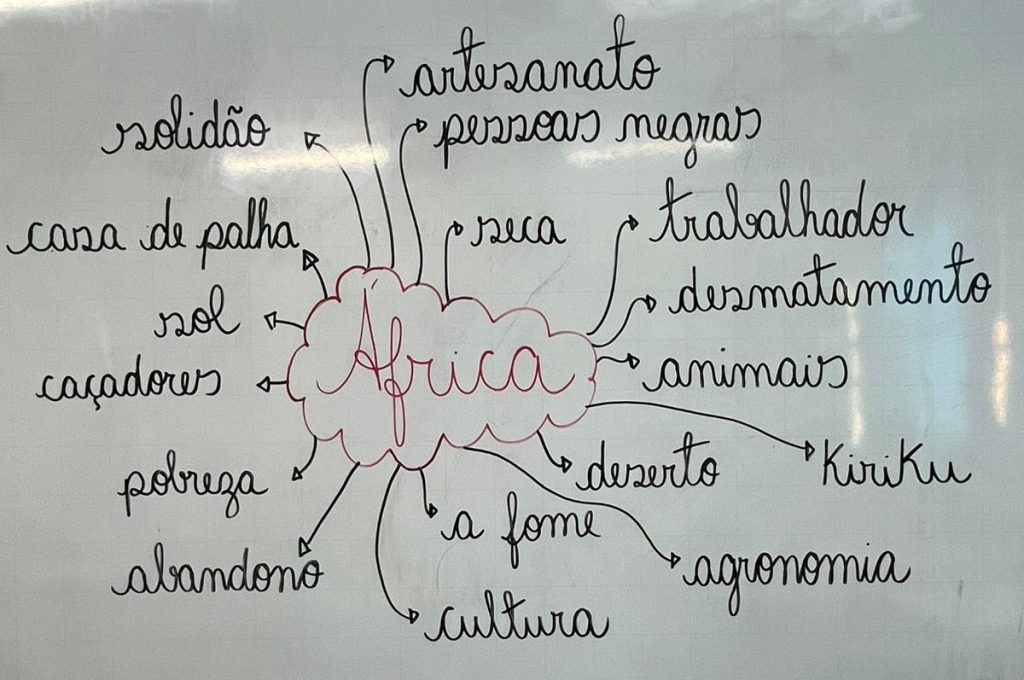 artesanato
pessoas negras
solidão
seca
trabalhador
casa de palha
desmatamento
sol
África
animais
caçadores
Kiriku
deserto
pobreza
a fome
abandono
agronomia
cultura